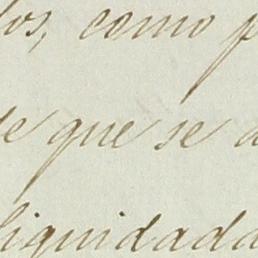 os, como p
e que se a
liquidada